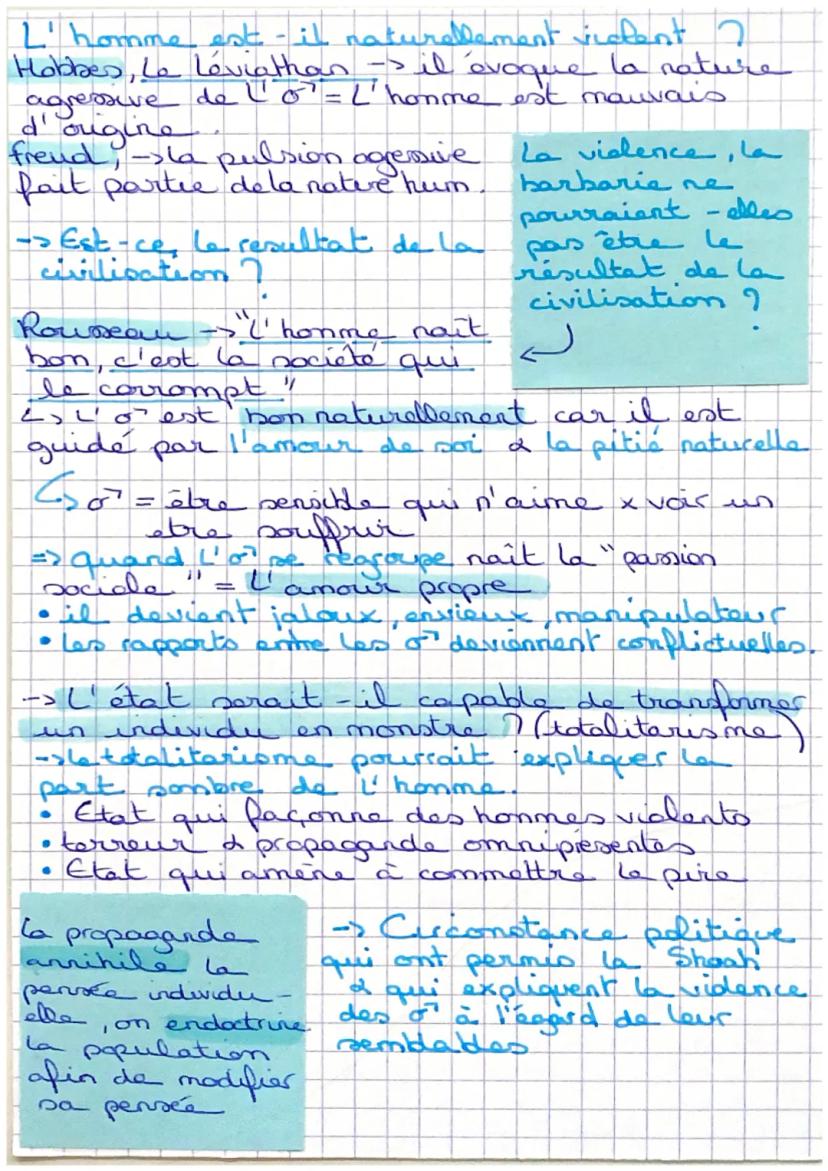 L'homme est-il naturellement violent ?
Hobbes, Le Léviathan -> il évoque la nature
agressive de l'♂ = L'homme est mauvais
d'origine.
freud, -> la pulsion agressive
fait partie de la nature hum.
-> Est-ce, le resultat de la
civilisation ?
La violence, la
barbarie ne
pourraient-elles
pas être le
résultat de la
civilisation ?
Rousseau -> "L'homme naît
bon, c'est la société qui
le corrompt"
↳ L'♂ est bon naturellement car il est
guidé par l'amour de soi & la pitié naturelle
↳ ♂ = être sensible qui n'aime x voir un
etre souffrir
=> quand L'♂ se regroupe naît la "passion
sociale" = L'amour propre
• il devient jaloux, envieux, manipulateur
• les rapports entre les ♂ deviennent conflictuelles.
-> L'état serait-il capable de transformer
un individu en monstre ? (totalitarisme)
-> le totalitarisme pourrait expliquer la
part sombre de l'homme.
• Etat qui façonne des hommes violents
• terreur & propagande omniprésentes
• Etat qui amène à commettre le pire
La propagande
annihile la
pensée individu-
elle, on endoctrine
la population
afin de modifier
sa pensée
-> Circonstance politique
qui ont permis la Shoah
& qui expliquent la violence
des ♂ à l'égard de leur
semblables